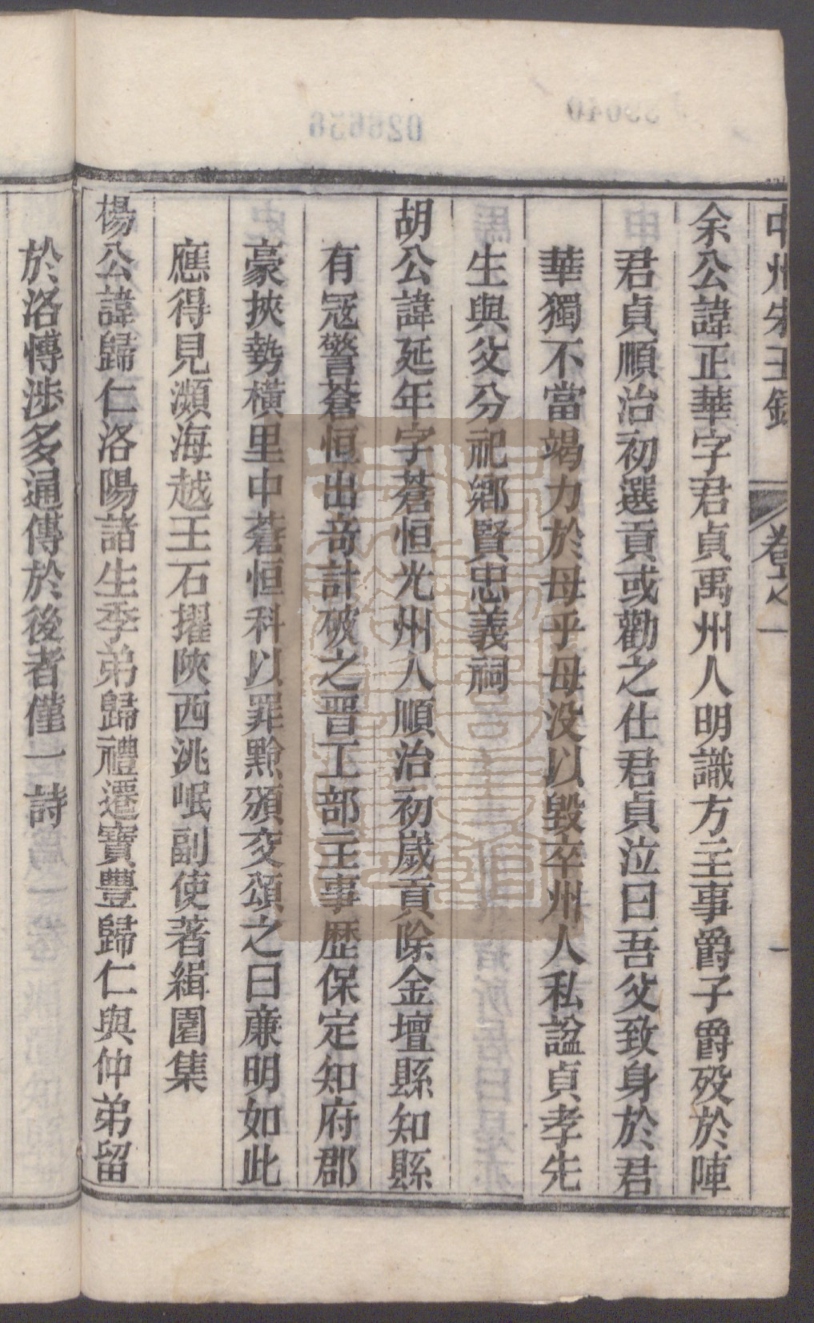 中州朱玉錄　卷之一　一
余公諱正華字君貞禹州人明職方主事爵子爵歿於陣
君貞順治初選貢或勸之仕君貞泣曰吾父致身於君
華獨不當竭力於母乎母没以毀卒州人私諡貞孝先
生與父分祀鄉賢忠義祠
胡公諱延年字蒼恒光州人順治初歲貢除金壇縣知縣
有冦警蒼恒出竒計破之晋工部主事歷保定知府郡
豪挾勢橫里中蒼恒科以罪黥頒交頌之曰亷明如此
應得見瀕海越王石擢陝西洮岷副使著緝園集
楊公諱歸仁洛陽諸生季弟歸禮遷寶豐歸仁與仲弟留
於洛慱涉多通傳於後者僅一詩